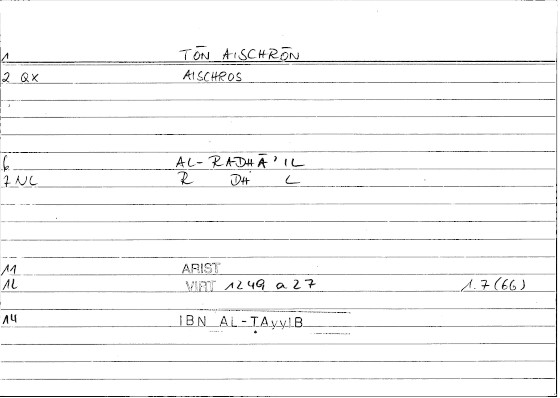 1 TŌN AISCHRŌN
2 QX AISCHROS
6 AL-RADHĀ'IL
7 NL R DH L
11 ARIST
12 VIRT 1249 a 27 1.7 (66)
14 IBN AL-ṬAyyIB